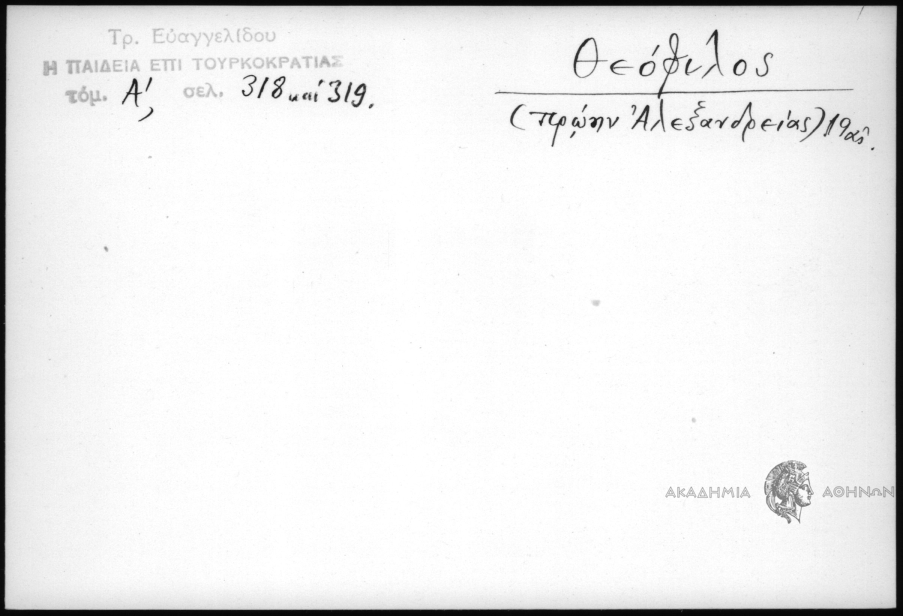 Τρ. Εὐαγγελίδου
Η ΠΑΙΔΕΙΑ ΕΠΙ ΤΟΥΡΚΟΚΡΑΤΙΑΣ
τόμ. Α', σελ. 318 καί 319.
Θεόφιλος
(πρώην Ἀλεξανδρείας) 19 αἰ.
ΑΚΑΔΗΜΙΑ ΑΘΗΝΩΝ